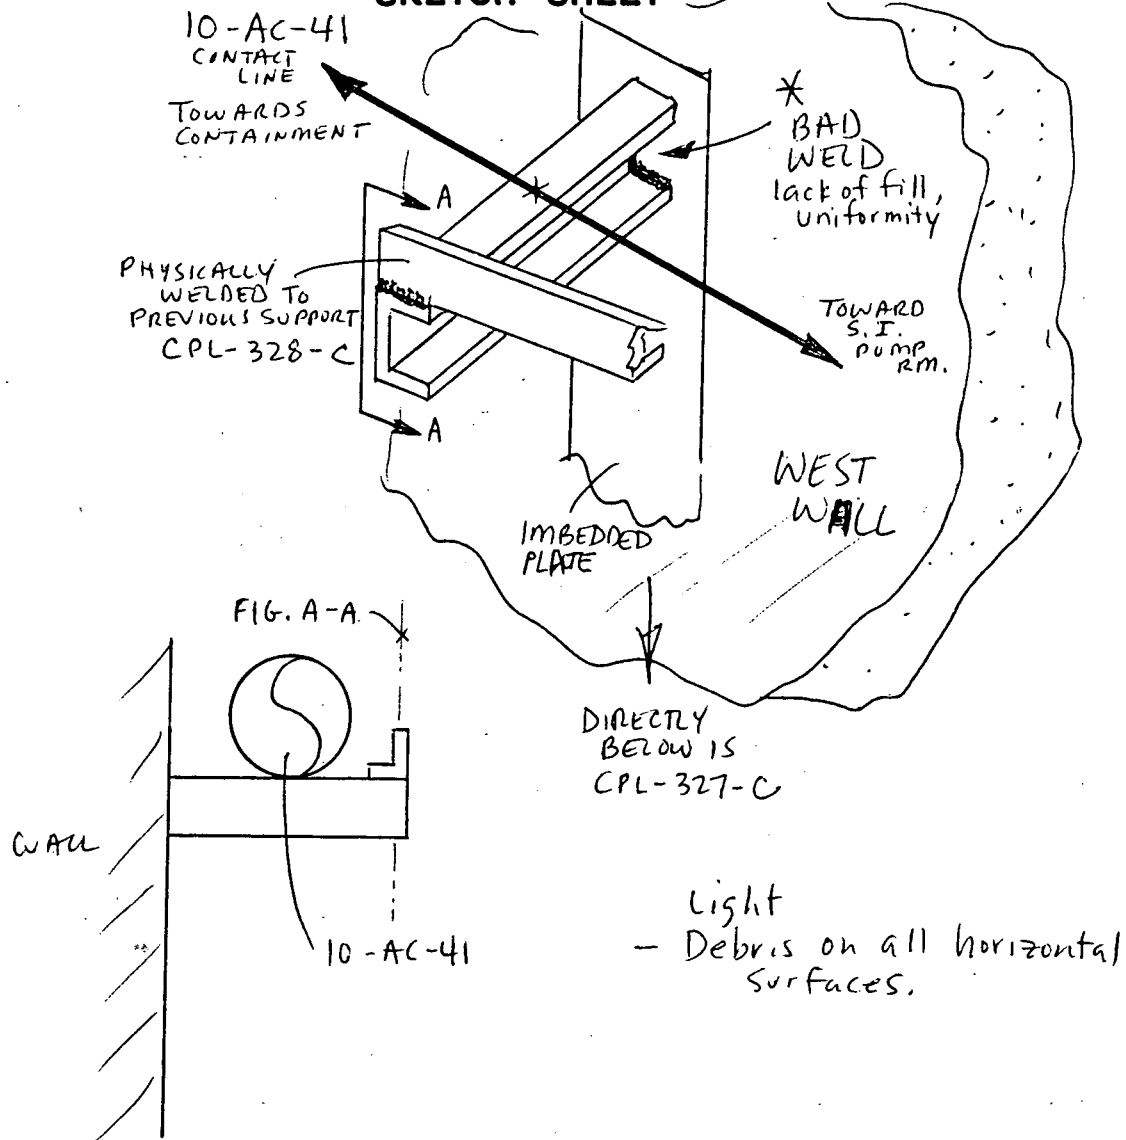 SKETCH SHEET
10-AC-41
CONTACT
LINE
TOWARDS
CONTAINMENT
*
BAD
WELD
lack of fill,
uniformity
A
PHYSICALLY
WELDED TO
PREVIOUS SUPPORT
CPL-328-C
A
TOWARD
S.I.
PUMP
RM.
WEST
WALL
IMBEDDED
PLATE
FIG. A-A
DIRECTLY
BELOW IS
CPL-327-C
WALL
10-AC-41
Light
- Debris on all horizontal
surfaces.